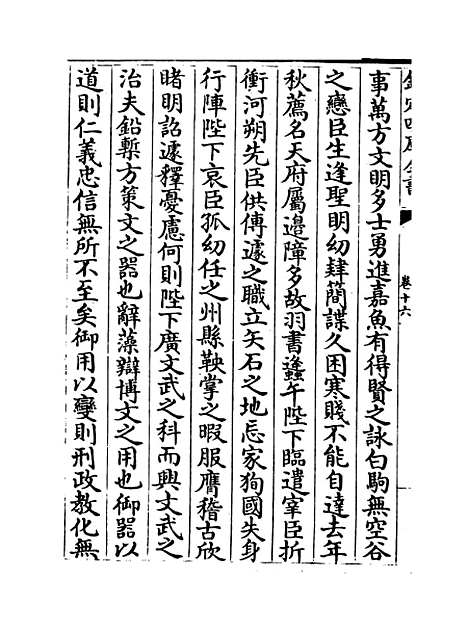 欽定四庫全書
卷十六
事萬方文明多士勇進嘉魚有得賢之詠白駒無空谷
之戀臣生逢聖明幼肄簡諜久困寒賤不能自達去年
秋薦名天府屬邉障多故羽書蠭午陛下臨遣宰臣折
衝河朔先臣供傳遽之職立矢石之地忘家狥國失身
行陣陛下哀臣孤幼任之州縣鞅掌之暇服膺稽古欣
睹明詔遽釋憂慮何則陛下廣文武之科而興文武之
治夫鉛槧方策文之器也辭藻辯博文之用也御器以
道則仁義忠信無所不至矣御用以變則刑政教化無